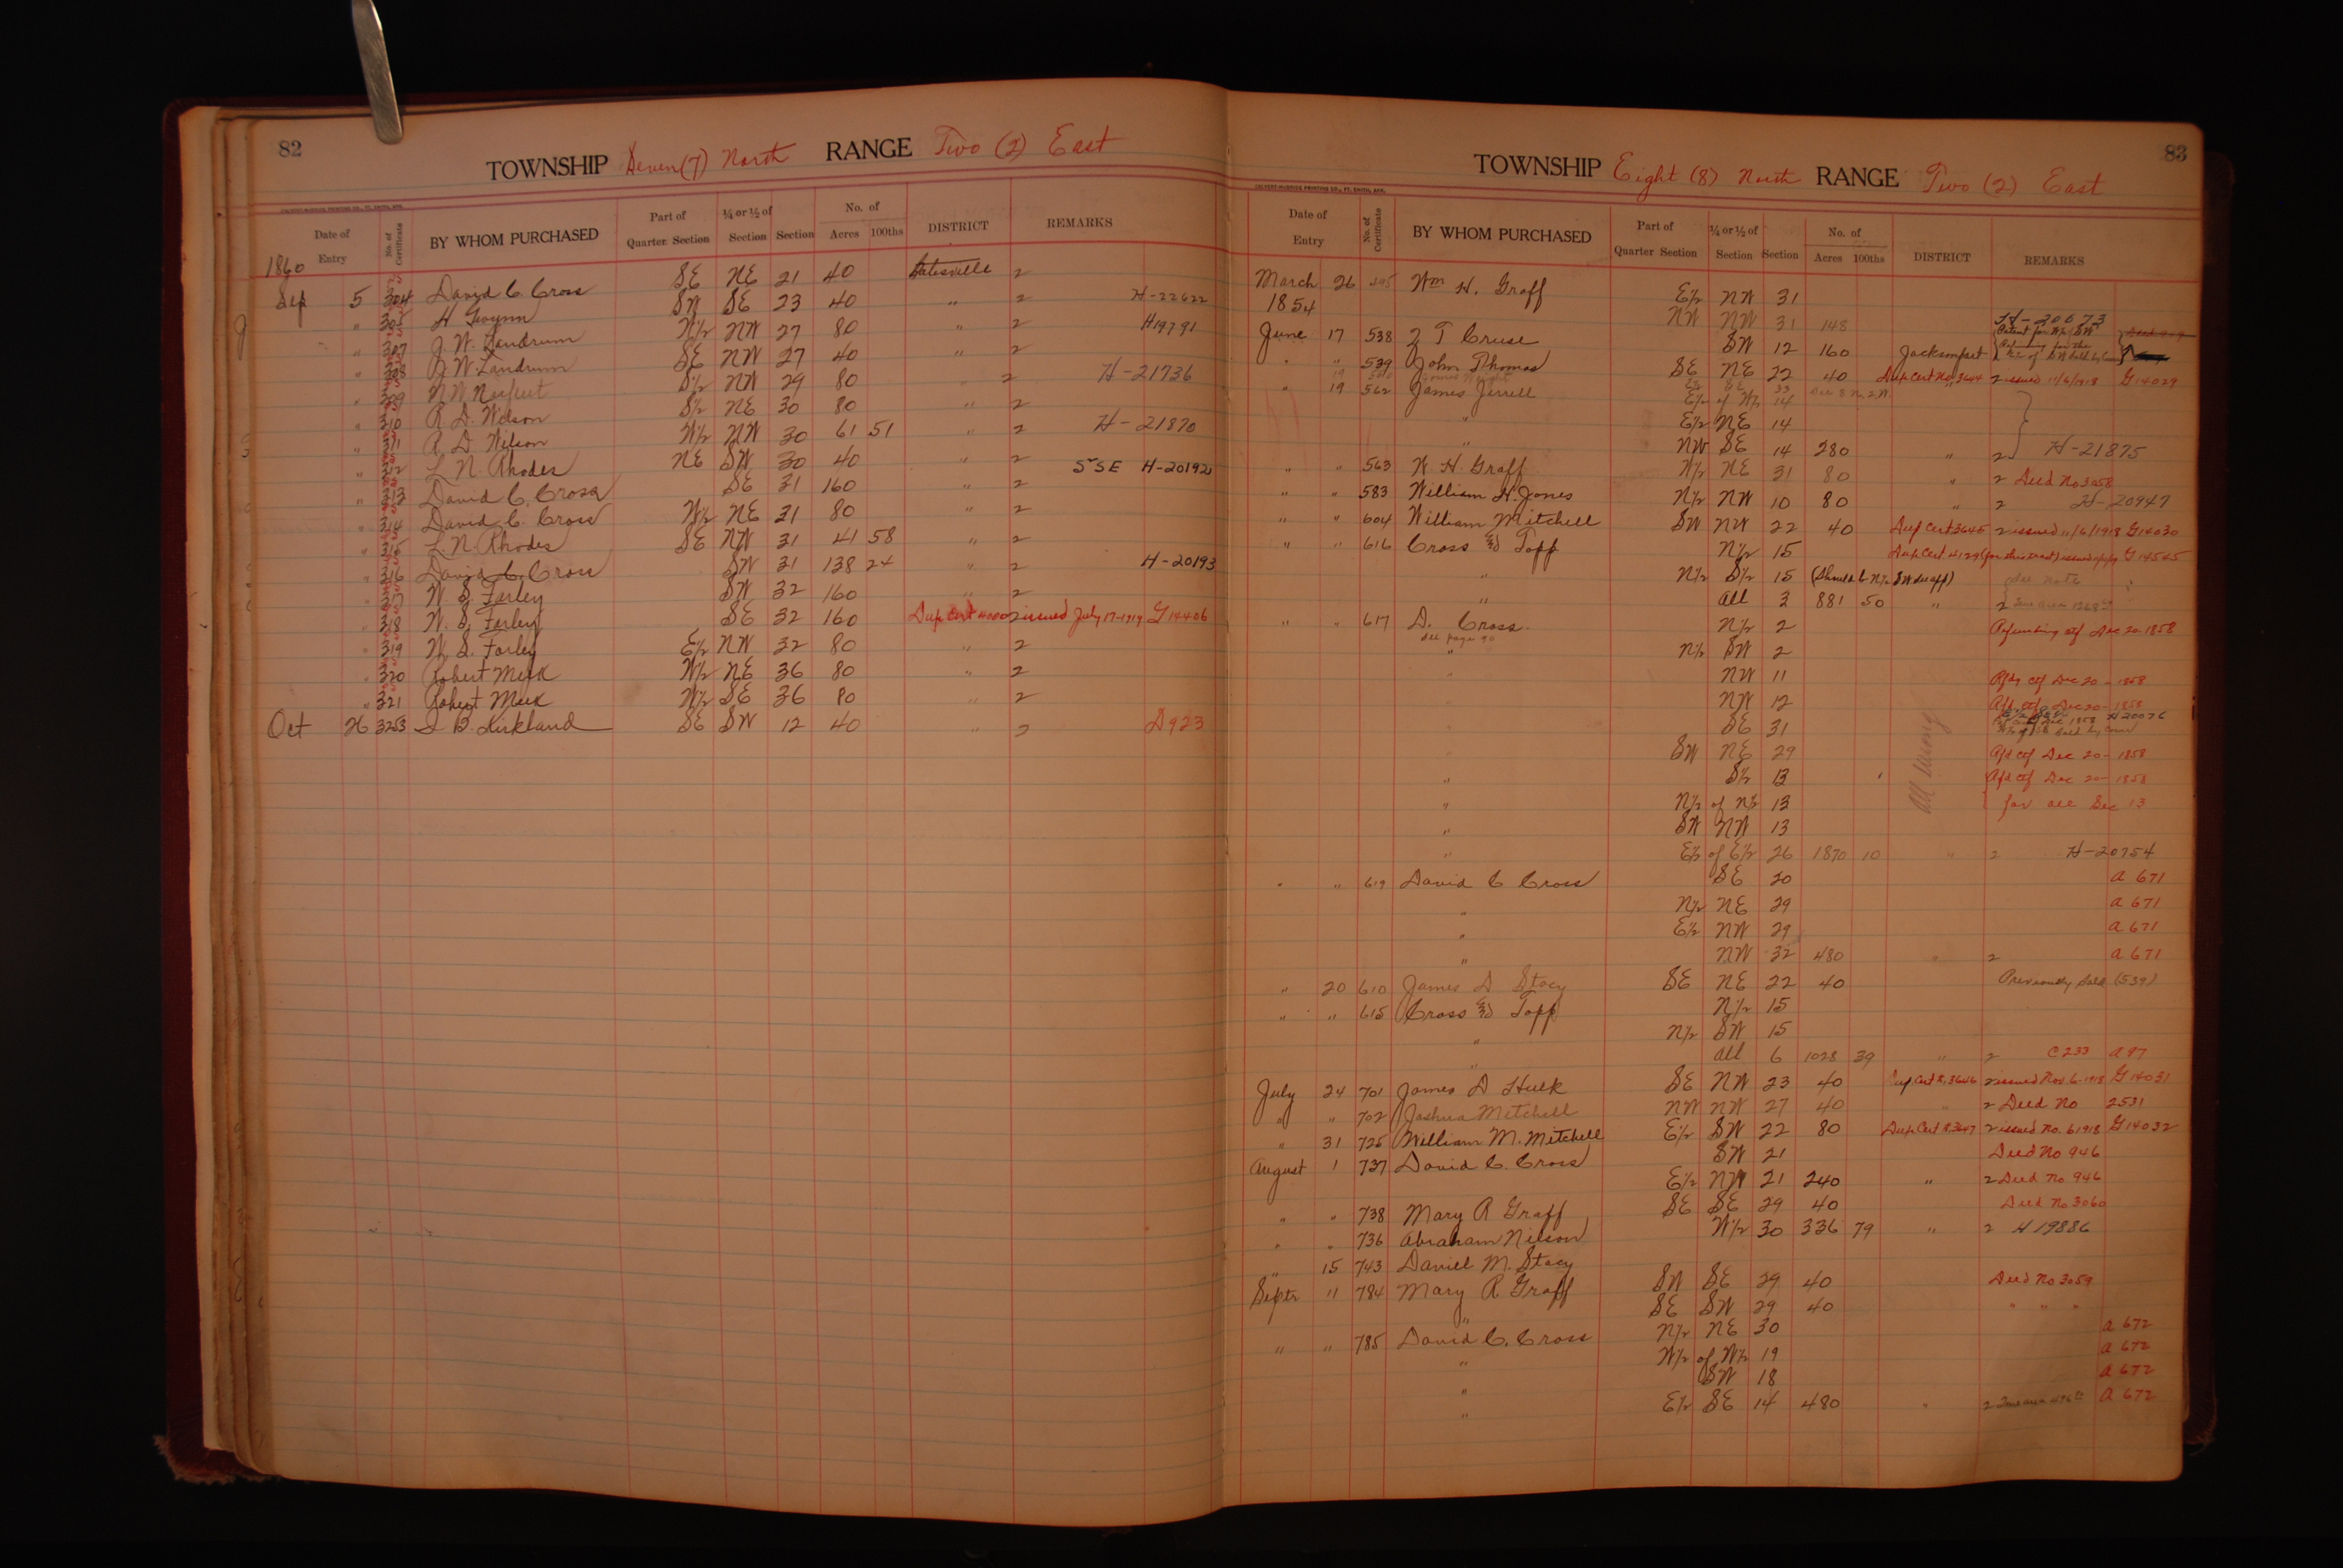 82
TOWNSHIP Seven (7) North RANGE Two (2) East
CALVERT-McBRIDE PRINTING CO., FT. SMITH, ARK.
Date of Entry No. of Certificate BY WHOM PURCHASED Part of Quarter Section ¼ or ½ of Section Section No. of Acres 100ths DISTRICT REMARKS
1860
Sep 5 304 David C. Cross SE NE 21 40 Batesville 2
" 305 H Gwynn SW SE 23 40 " 2 H-22622
" 307 J. W. Landrum N½ NW 27 80 " 2 H19791
" 308 J. W. Landrum SE NW 27 40 " 2
" 309 S½ NW 29 80 " 2 H-21736
" 310 R. D. Wilson S½ NE 30 80 " 2
" 311 R. D. Wilson W½ NW 30 61 51 " 2 H-21870
" 312 L. N. Rhodes NE SW 30 40 " 2
" 313 David C. Cross SE 31 160 " 2 S SE H-20192
" 314 David C. Cross W½ NE 31 80 " 2
" 315 L. N. Rhodes SE NW 31 41 58 " 2
" 316 David C. Cross SW 31 138 24 " 2 H-20193
" 317 W. S. Farley SW 32 160 2
" 318 W. S. Farley SE 32 160 Dup Cert 4000 2 issued July 17-1919 G 14406
" 319 W. S. Farley E½ NW 32 80 " 2
" 320 Robert Meek W½ NE 36 80 " 2
" 321 Robert Meek W½ SE 36 80 " 2
Oct 26 3253 B. Kirkland SE SW 12 40 " 2 D923
83
TOWNSHIP Eight (8) North RANGE Two (2) East
CALVERT-McBRIDE PRINTING CO., FT. SMITH, ARK.
Date of Entry No. of Certificate BY WHOM PURCHASED Part of Quarter Section ¼ or ½ of Section Section No. of Acres 100ths DISTRICT REMARKS
March 26 Wm H. Graff E½ NW 31
1854 NW NW 31 148 H-20673
June 17 538 Z T Cruse SW 12 160 Jacksonport
" " 539 John Thomas SE NE 22 40 Dup Cert No. 3644 2 issued 11/6/1918 G14029
" 19 562 James Jarrell E½ of W½ 14
" E½ NE 14
" NW SE 14 280 " 2 H-21875
" " 563 W. H. Graff W½ NE 31 80 " 2 Deed No 3058
" " 583 William H. Jones N½ NW 10 80 " 2 H-20947
" " 604 William Mitchell SW NW 22 40 Dup Cert. 3645 2 issued 11/6/1918 G14030
" " 616 Cross & Topp N½ 15 Dup Cert. 4129 (for this tract) issued G14565
" N½ S½ 15 (Should be N½ SW see aff) See note
" All 3 881 50 " 2
" " 617 D. Cross N½ 2 Refunding ctf Dec 20-1858
See page 90
" N½ SW 2
" NW 11 Rfdg ctf Dec 20-1858
NW 12 Rfd ctf Dec 20-1858
SE 31 H20076
SW NE 29 Rfd ctf Dec 20-1858
" S½ 13 Rfd ctf Dec 20-1858
" N½ of N½ 13 for all Sec 13
" SW NW 13
All wrong
" E½ of E½ 26 1870 10 " 2 H-20754
" " 619 David C Cross SE 20 A 671
" N½ NE 29 A 671
" E½ NW 29 A 671
" NW 32 480 " 2 A 671
" 20 610 James D Stacy SE NE 22 40 Previously Sold (539)
" " 615 Cross & Topp N½ 15
" N½ SW 15
" All 6 1028 39 " 2 C233 A 97
July 24 701 James D Hulk SE NW 23 40 Dup Cert #3646 2 issued Nov. 6-1918 G14031
" " 702 Joshua Mitchell NW NW 27 40 " 2 Deed No 2531
" 31 725 William M. Mitchell E½ SW 22 80 Dup Cert #3647 2 issued No. 6 1918 G14032
August 1 737 David C. Cross SW 21 Deed No 946
E½ NW 21 240 " 2 Deed No 946
" " 738 Mary R Graff SE SE 29 40 Deed No 3060
" " 736 Abraham Nelson W½ 30 336 79 " 2 H 19886
" 15 743 Daniel M. Stacy
Septr 11 784 Mary R Graff SW SE 29 40 Deed No 3059
" SE SW 29 40 " " "
" " 785 David C. Cross N½ NE 30 A 672
" W½ of W½ 19 A 672
" SW 18 A 672
" E½ SE 14 480 " 2 A 672